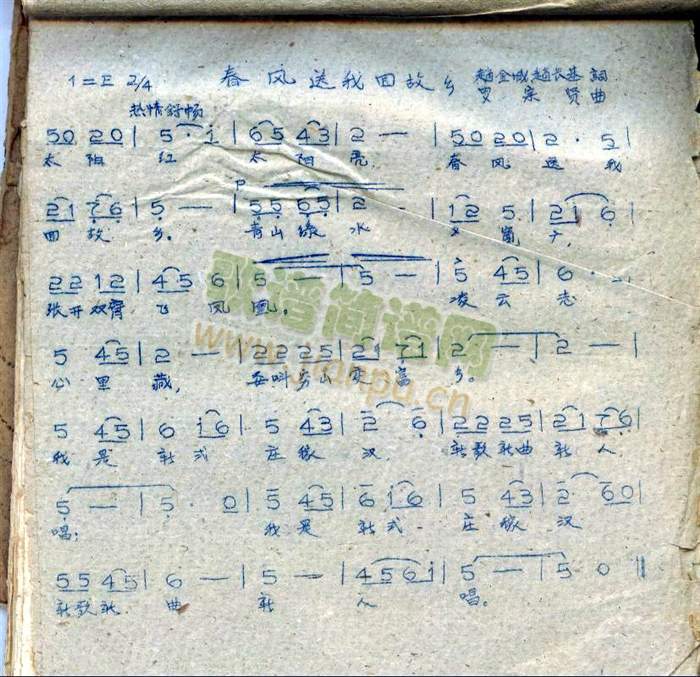 1=E 2/4 春风送我回故乡 赵金城赵长基詞
罗宗贤曲
热情舒畅
50 20 | 5 · i | 65 43 | 2 — | 50 20 | 2 · 5 |
太 阳 红 太 阳 亮, 春 风 送 我
21 76 | 5 — | 55 65 | 2 — | 12 5 | 21 6 |
回 故 乡。 青山绿 水
p
22 12 | 45 6 | 5 — | 5 — | 5 45 | 6 · |
张开双臂 飞 凤 凰。 凌 云 志
5 45 | 2 — | 22 25 | 21 71 | 2 — | 2 — |
心 里 藏, 要叫穷山变 富 乡。
5 45 | 6 i6 | 5 43 | 2 6 | 22 25 | 21 76 |
我 是 新 式 庄 稼 汉, 新歌新曲 新 人
5 — | 5 · 0 | 5 45 | 6 i6 | 5 43 | 2 · 60 |
唱; 我 是 新式 庄 稼 汉
55 45 | 6 — | 5 — | 456i | 5 — | 5 0 ‖
新歌新 曲 新 人 唱。
歌谱简谱网
www.jianpu.cn